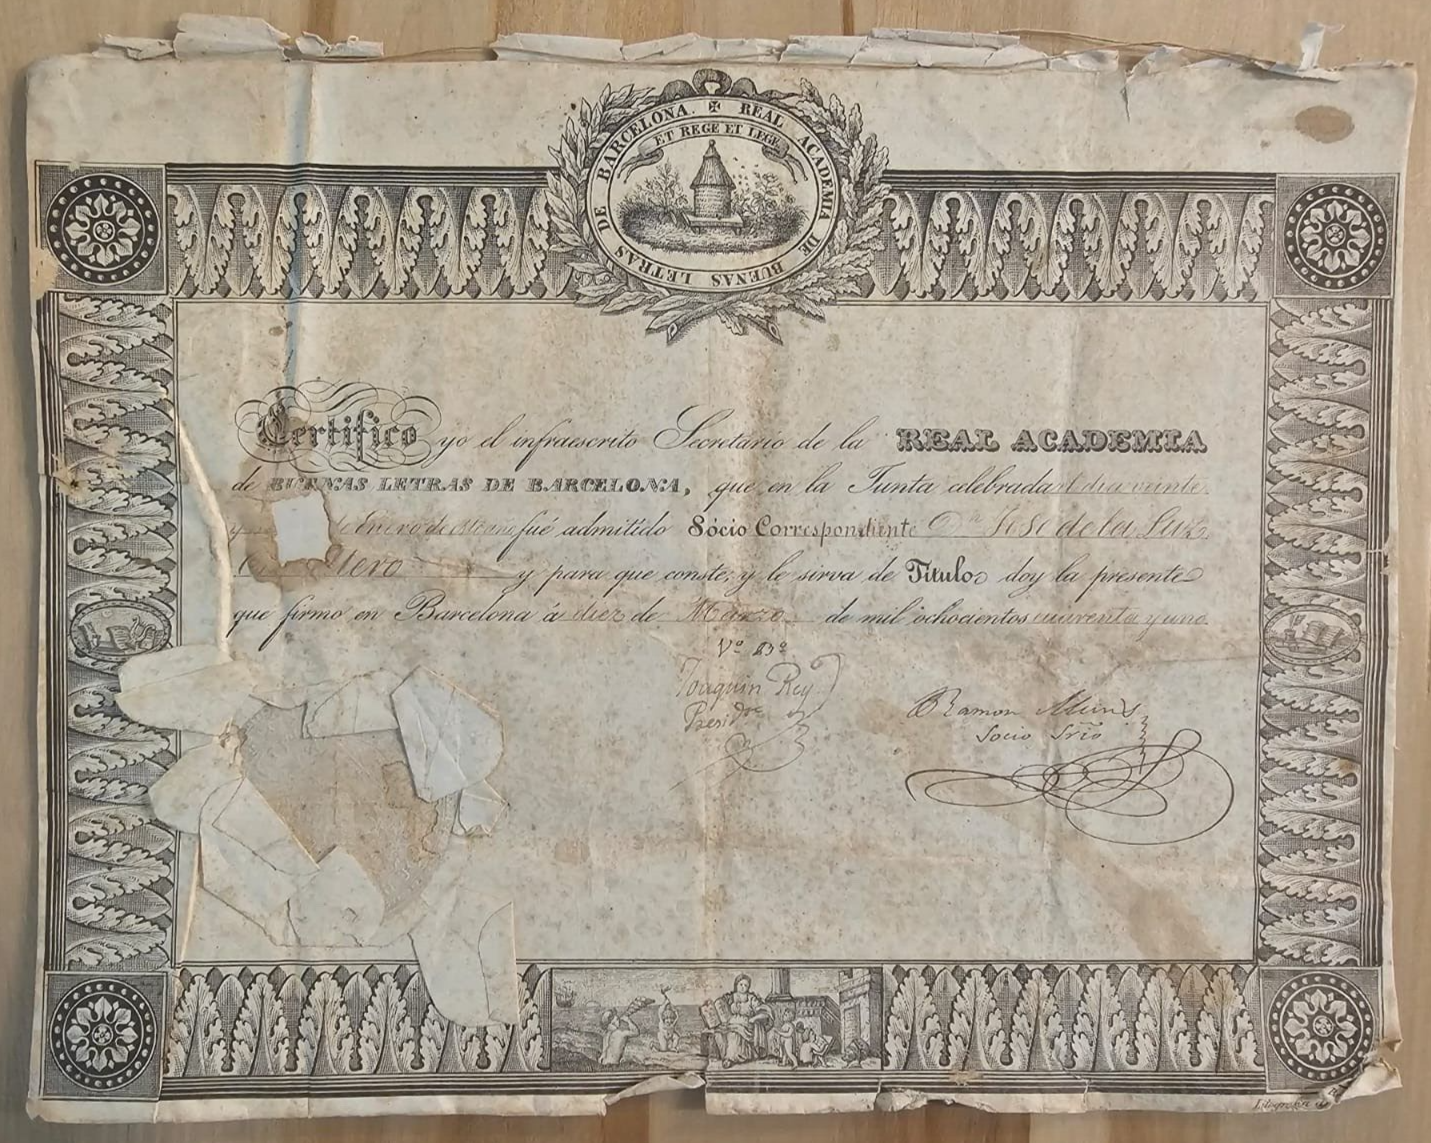 REAL ACADEMIA DE BUENAS LETRAS DE BARCELONA.
ET REGE ET LEGE
Certifico yo el infraescrito Secretario de la REAL ACADEMIA
de BUENAS LETRAS DE BARCELONA, que en la Junta celebrada el dia veinte
y de Enero de fué admitido Sócio Correspondiente Dn. Jose de la Luz
llero y para que conste, y le sirva de Titulo doy la presente
que firmo en Barcelona á diez de Marzo de mil ochocientos cuarenta y uno.
Vº Bº
Joaquin Rey
Presidte
Ramon Muns
Socio Srio